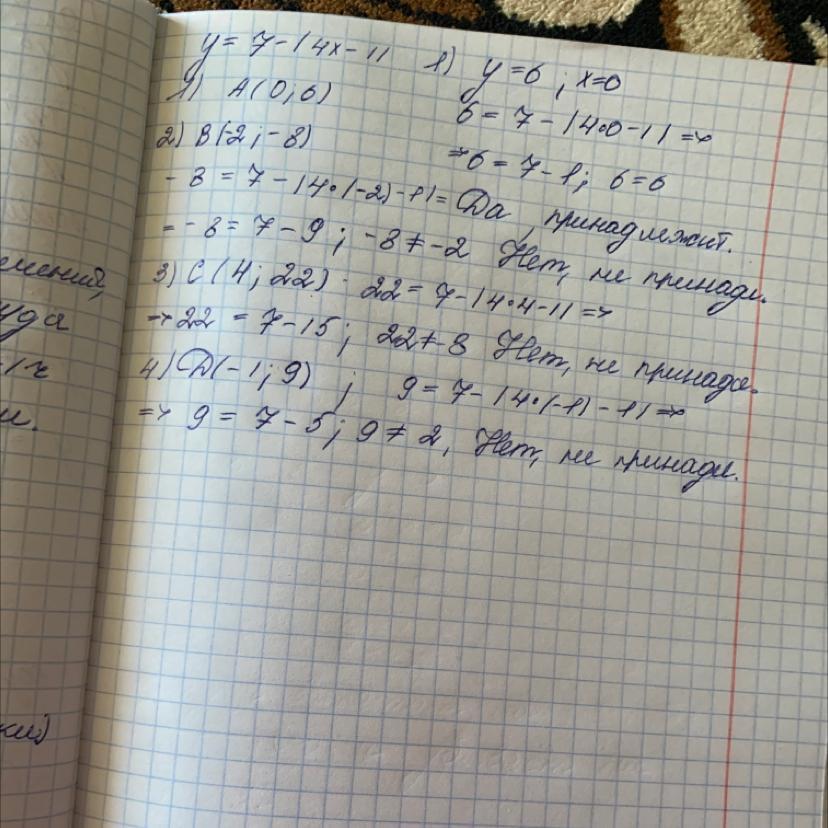 y = 7 - |4x - 1| 1) y = 6 ; x = 0
1) A(0; 6) 6 = 7 - |4·0 - 1| =>
2) B(-2; -8) => 6 = 7 - 1; 6 = 6
- 8 = 7 - |4·(-2) - 1| = Да, принадлежит.
= - 8 = 7 - 9; -8 ≠ -2 Нет, не принадл.
3) C(4; 22) · 22 = 7 - |4·4 - 1| =>
=> 22 = 7 - 15; 22 ≠ -8 Нет, не принадл.
4) D(-1; 9) ; 9 = 7 - |4·(-1) - 1| =>
=> 9 = 7 - 5; 9 ≠ 2, Нет, не принадл.